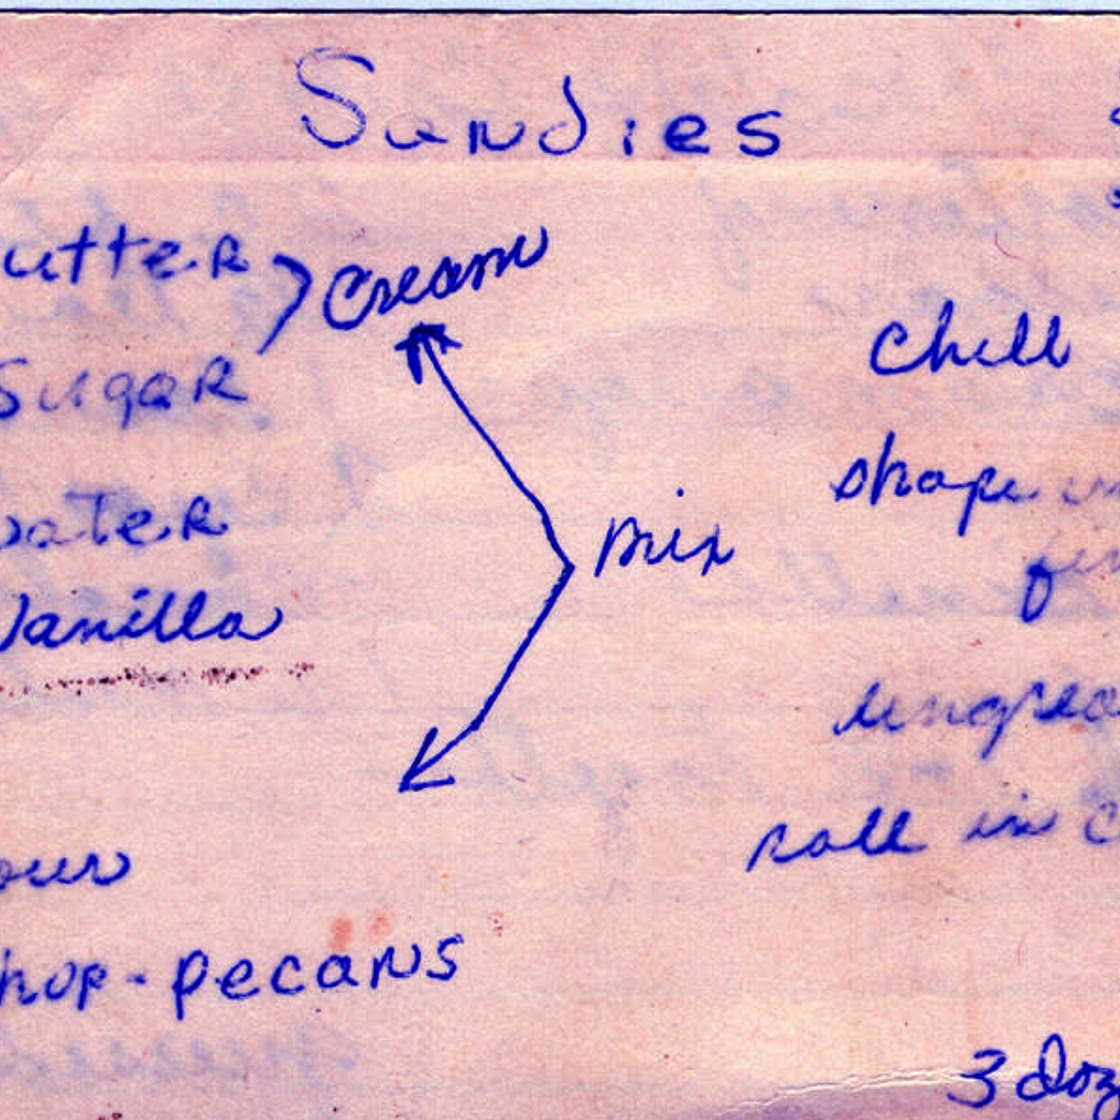 Sandies
utter } Cream
Sugar
water
Vanilla
mix
our
hop - pecans
Chill
shape
ungrea
roll in
3 doz